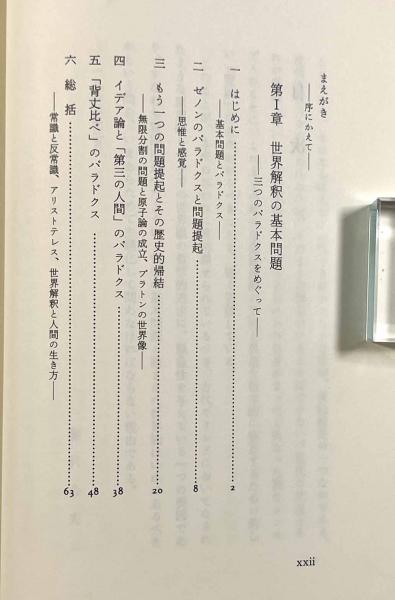 まえがき
——序にかえて——
第Ⅰ章 世界解釈の基本問題
——三つのパラドクスをめぐって——
一 はじめに……………………………………2
——基本問題とパラドクス——
二 ゼノンのパラドクスと問題提起……………………8
——思惟と感覚——
三 もう一つの問題提起とその歴史的帰結……………………20
——無限分割の問題と原子論の成立、プラトンの世界像——
四 イデア論と「第三の人間」のパラドクス……………………38
五 「背丈比べ」のパラドクス……………………48
六 総括……………………63
——常識と反常識、アリストテレス、世界解釈と人間の生き方——
xxii